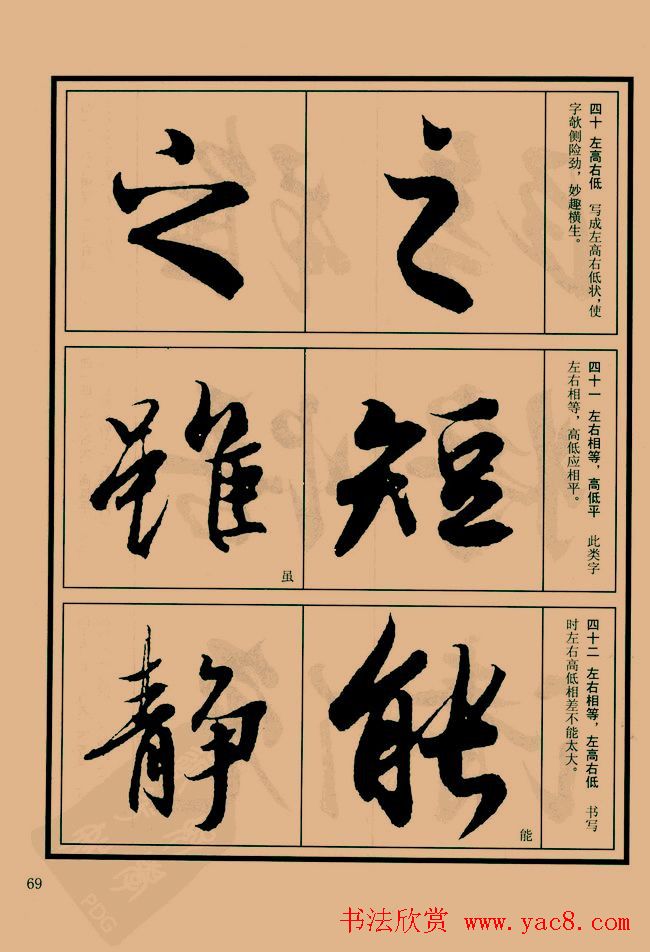 四十 左高右低 写成左高右低状，使
字欹侧险劲，妙趣横生。
之
之
四十一 左右相等，高低平 此类字
左右相等，高低应相平。
短
雖
虽
四十二 左右相等，左高右低 书写
时左右高低相差不能太大。
能
能
静
69
书法欣赏 www.yac8.com